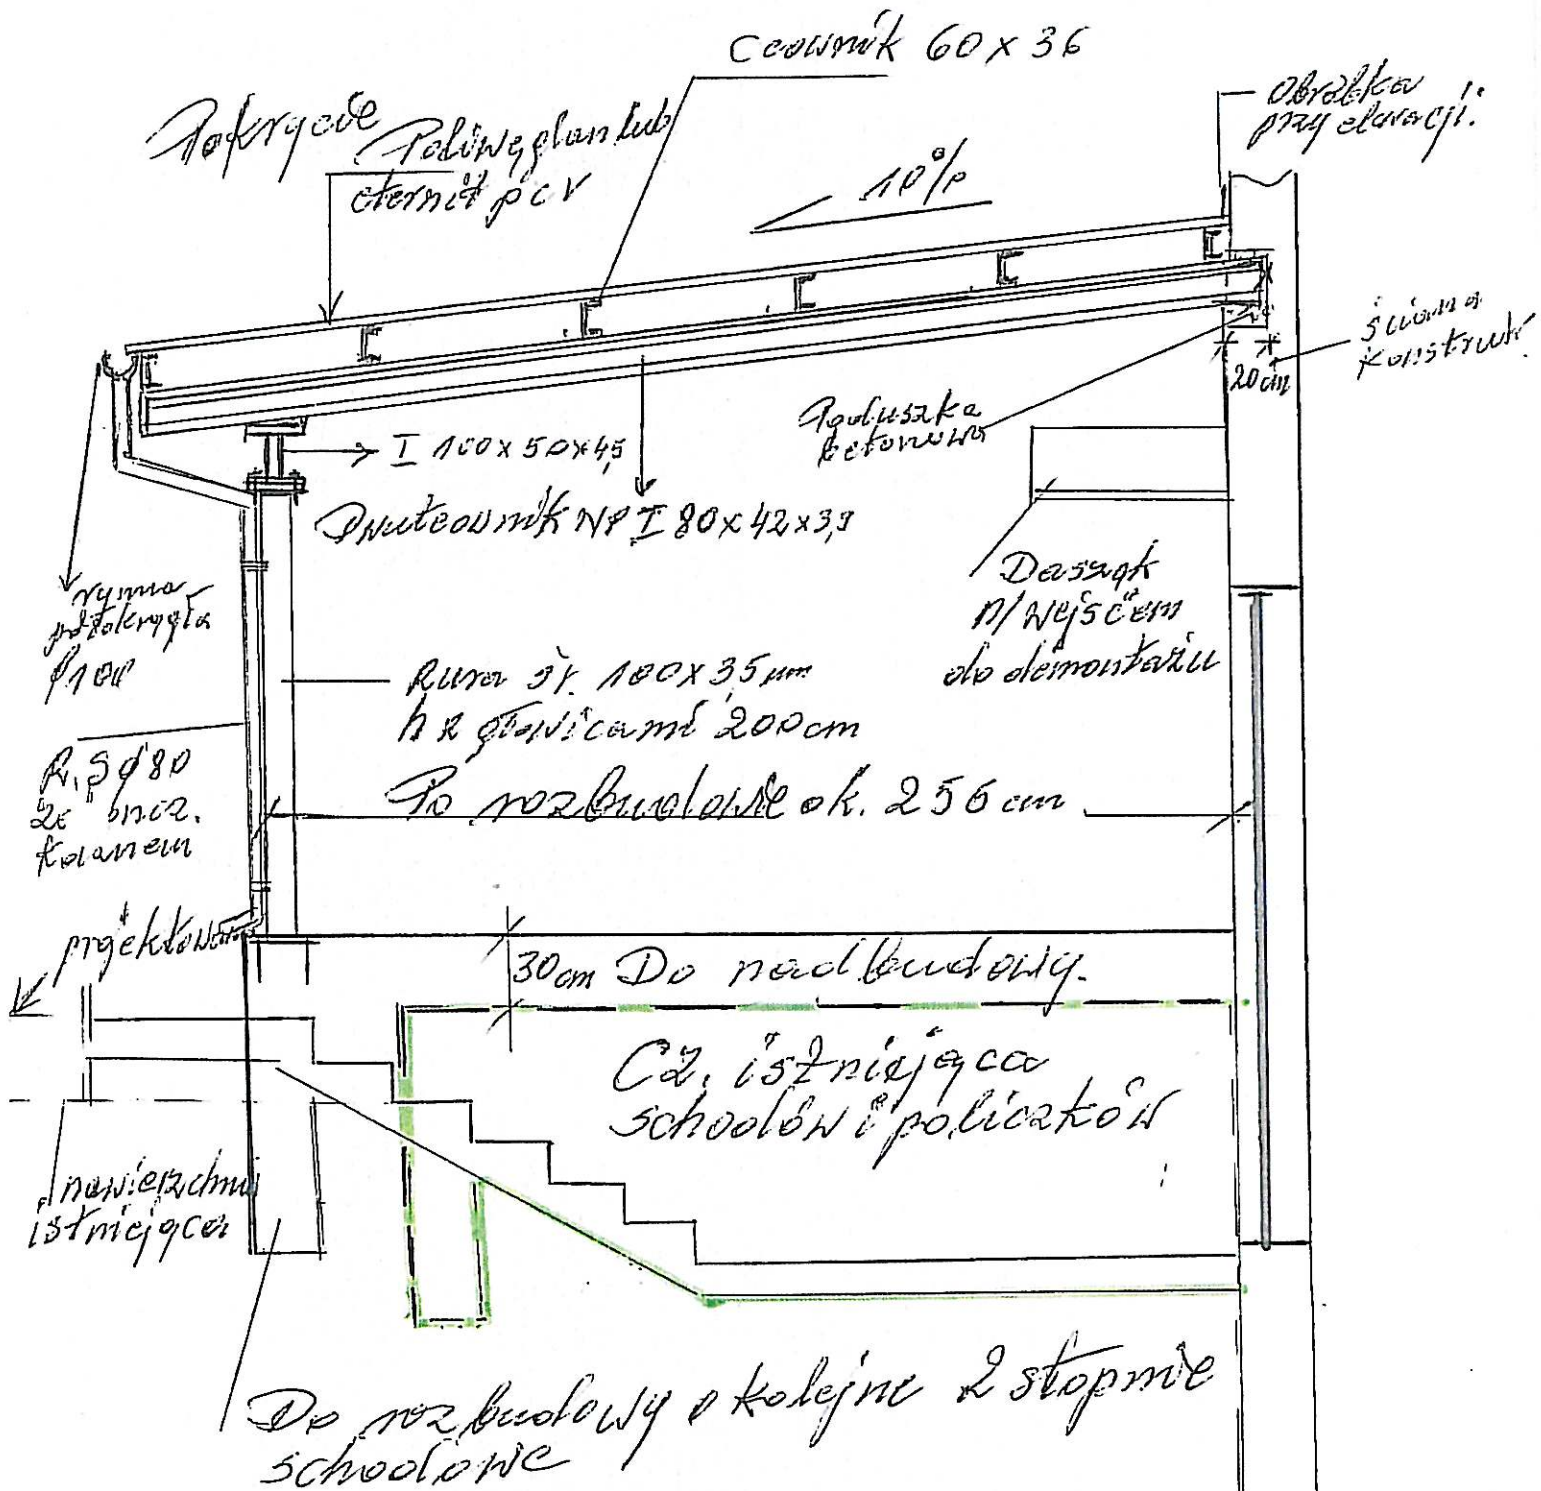 Ceownik 60 x 36
Obróbka
przy elewacji.
Pokrycie
Poliwęglan lub
eternit pcv
10%
ściana
konstrukt.
20cm
Poduszka
betonowa
I 100 x 50 x 4,5
Dwuteownik NP I 80 x 42 x 3,9
Daszek
n/wejściem
do demontażu
rynna
półokrągła
φ100
Rura śr. 100 x 3,5 mm
h z głowicami 200 cm
R. S φ 80
kolanem
Po rozbudowie ok. 256 cm
30cm Do nadbudowy.
Cz. istniejąca
schodów i policzków
nawierzchnia
istniejąca
Do rozbudowy o kolejne 2 stopnie
schodowe